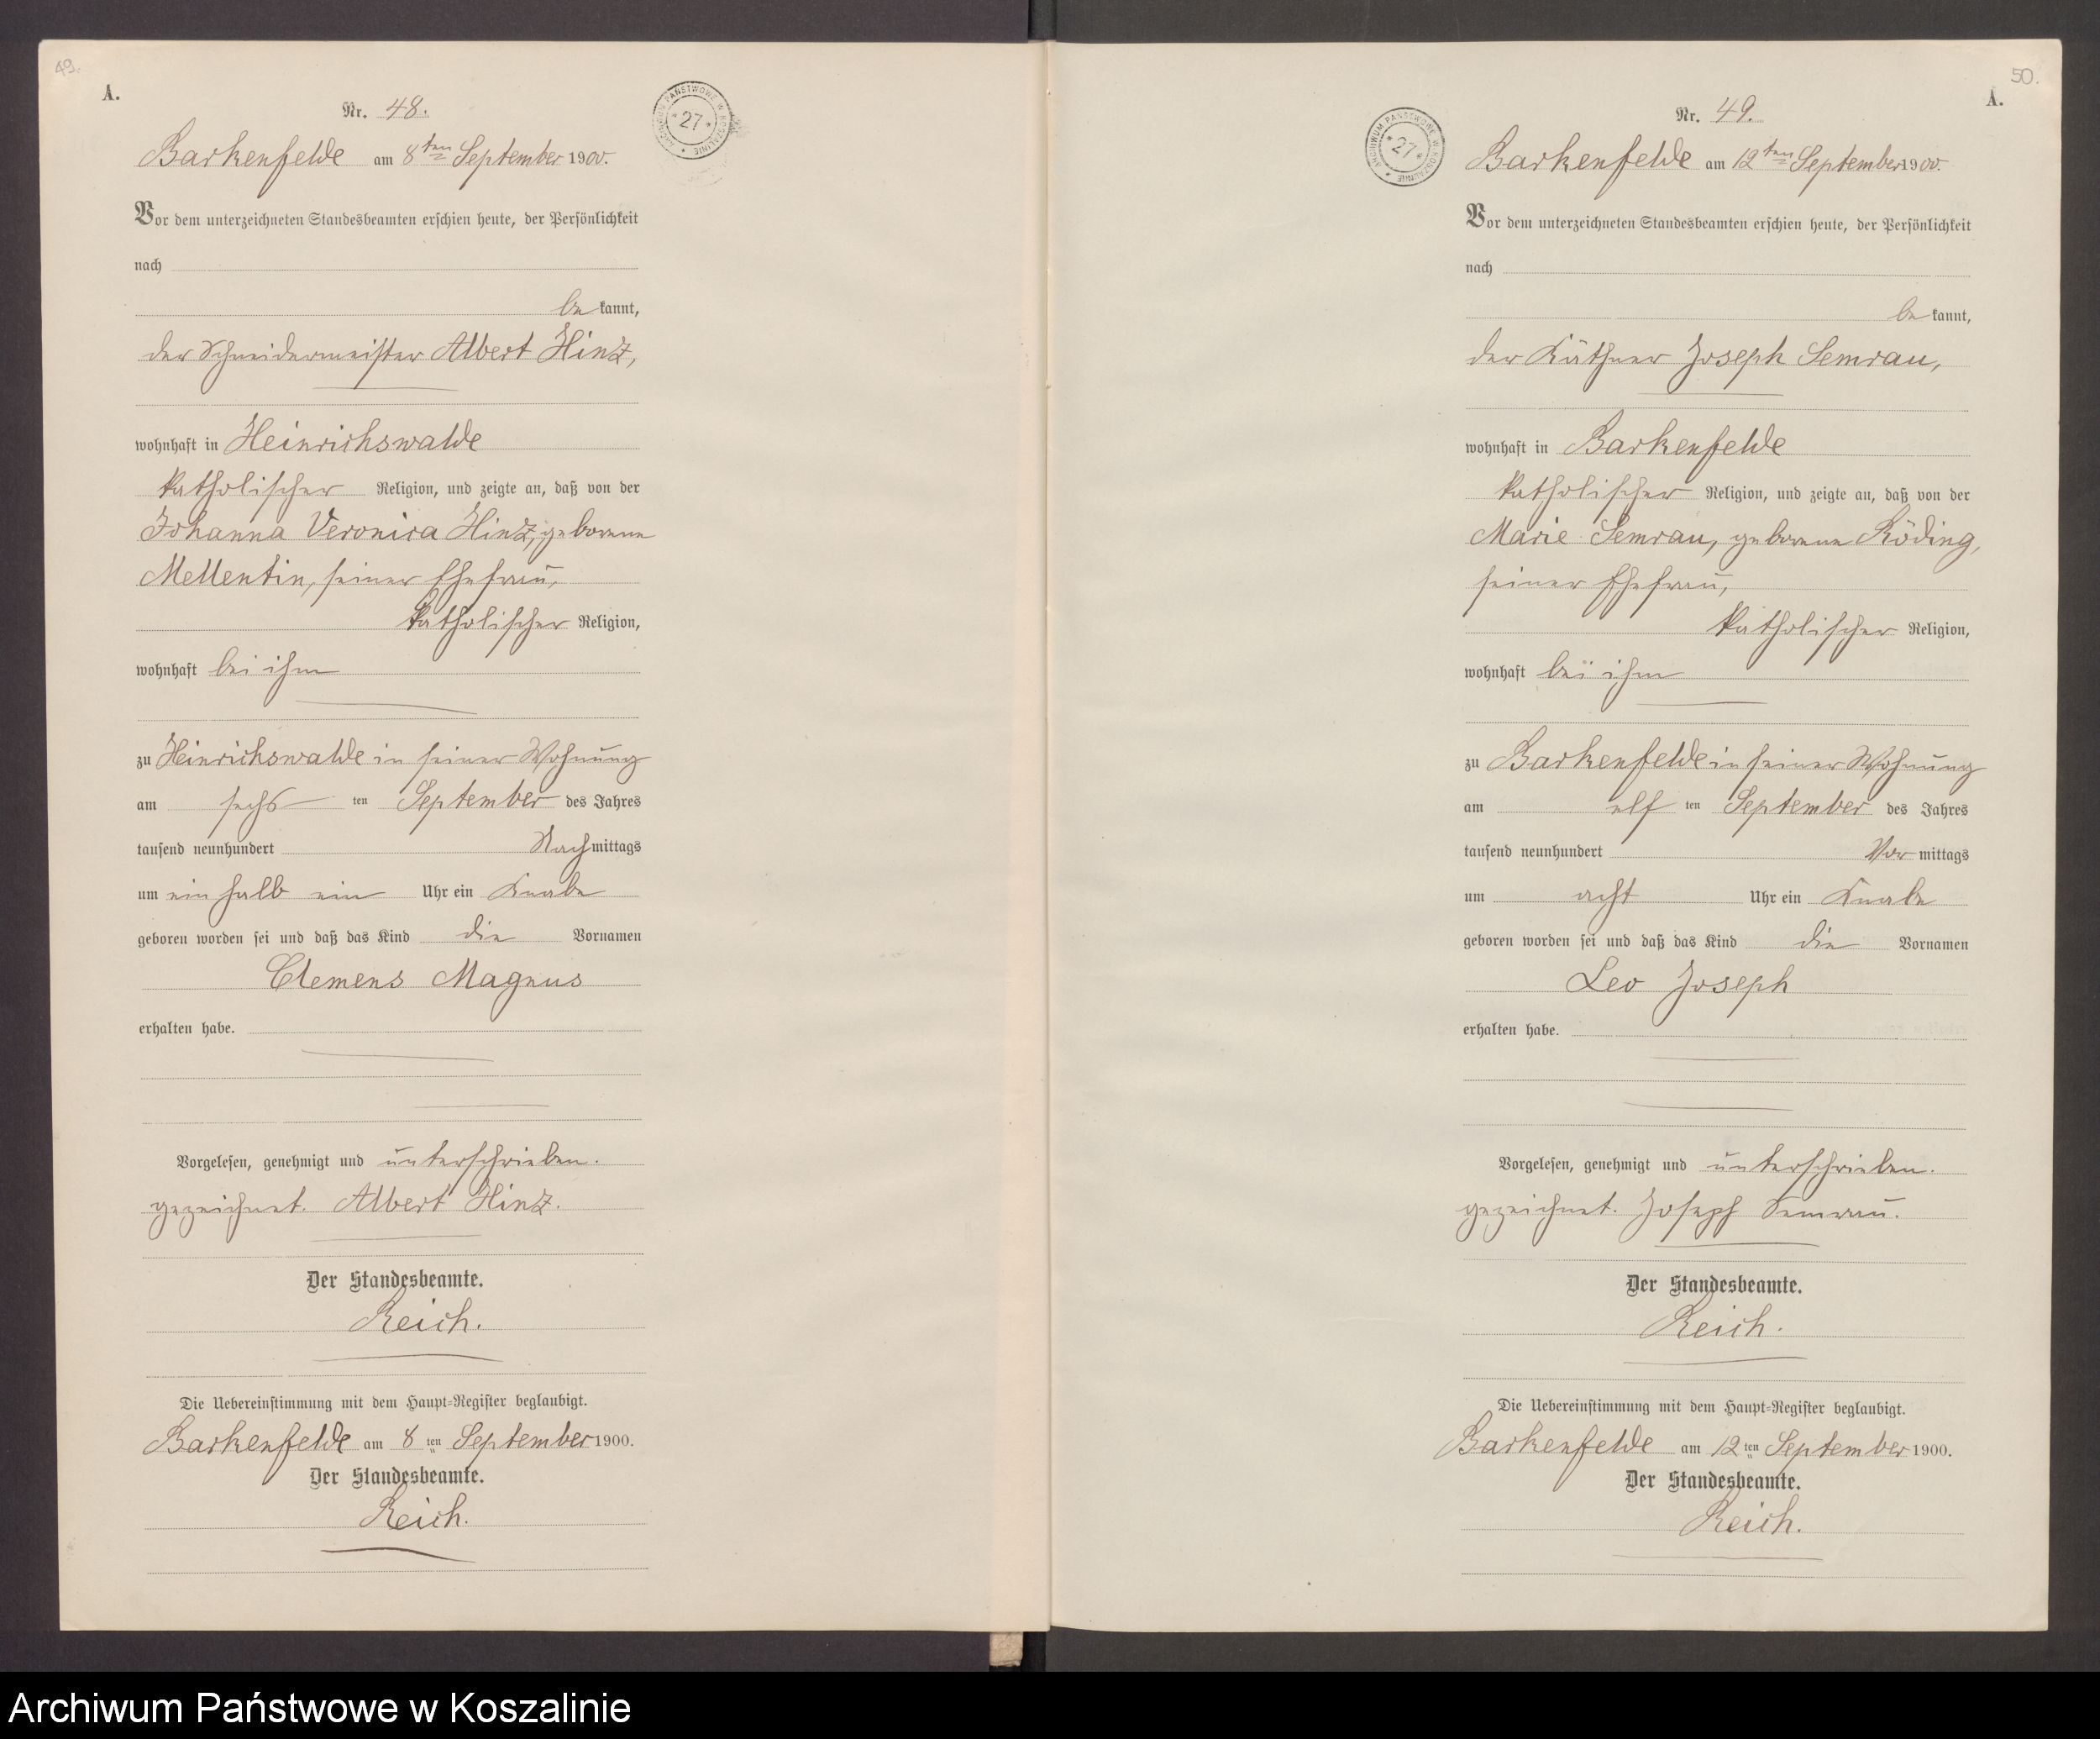 49.
A.
Nr. 48.
ARCHIWUM PAŃSTWOWE W KOSZALINIE * 27 *
Barkenfelde am 8ten September 1900.
Vor dem unterzeichneten Standesbeamten erschien heute, der Persönlichkeit
nach
be kannt,
der Schneidermeister Albert Hinz,
wohnhaft in Heinrichswalde
katholischer Religion, und zeigte an, daß von der
Johanna Veronica Hinz, geborene
Mellentin, seiner Ehefrau,
katholischer Religion,
wohnhaft bei ihm
zu Heinrichswalde in seiner Wohnung
am sechs ten September des Jahres
tausend neunhundert Nachmittags
um ein halb ein Uhr ein Knabe
geboren worden sei und daß das Kind die Vornamen
Clemens Magnus
erhalten habe.
Vorgelesen, genehmigt und unterschrieben.
gezeichnet. Albert Hinz.
Der Standesbeamte.
Reich.
Die Uebereinstimmung mit dem Haupt-Register beglaubigt.
Barkenfelde am 8 ten September 1900.
Der Standesbeamte.
Reich.
50.
A.
Nr. 49.
ARCHIWUM PAŃSTWOWE W KOSZALINIE * 27 *
Barkenfelde am 12ten September 1900.
Vor dem unterzeichneten Standesbeamten erschien heute, der Persönlichkeit
nach
be kannt,
der Käthner Joseph Semrau,
wohnhaft in Barkenfelde
katholischer Religion, und zeigte an, daß von der
Marie Semrau, geborene Röding,
seiner Ehefrau,
katholischer Religion,
wohnhaft bei ihm
zu Barkenfelde in seiner Wohnung
am elf ten September des Jahres
tausend neunhundert Vor mittags
um acht Uhr ein Knabe
geboren worden sei und daß das Kind die Vornamen
Leo Joseph
erhalten habe.
Vorgelesen, genehmigt und unterschrieben.
gezeichnet. Joseph Semrau.
Der Standesbeamte.
Reich.
Die Uebereinstimmung mit dem Haupt-Register beglaubigt.
Barkenfelde am 12 ten September 1900.
Der Standesbeamte.
Reich.
Archiwum Państwowe w Koszalinie